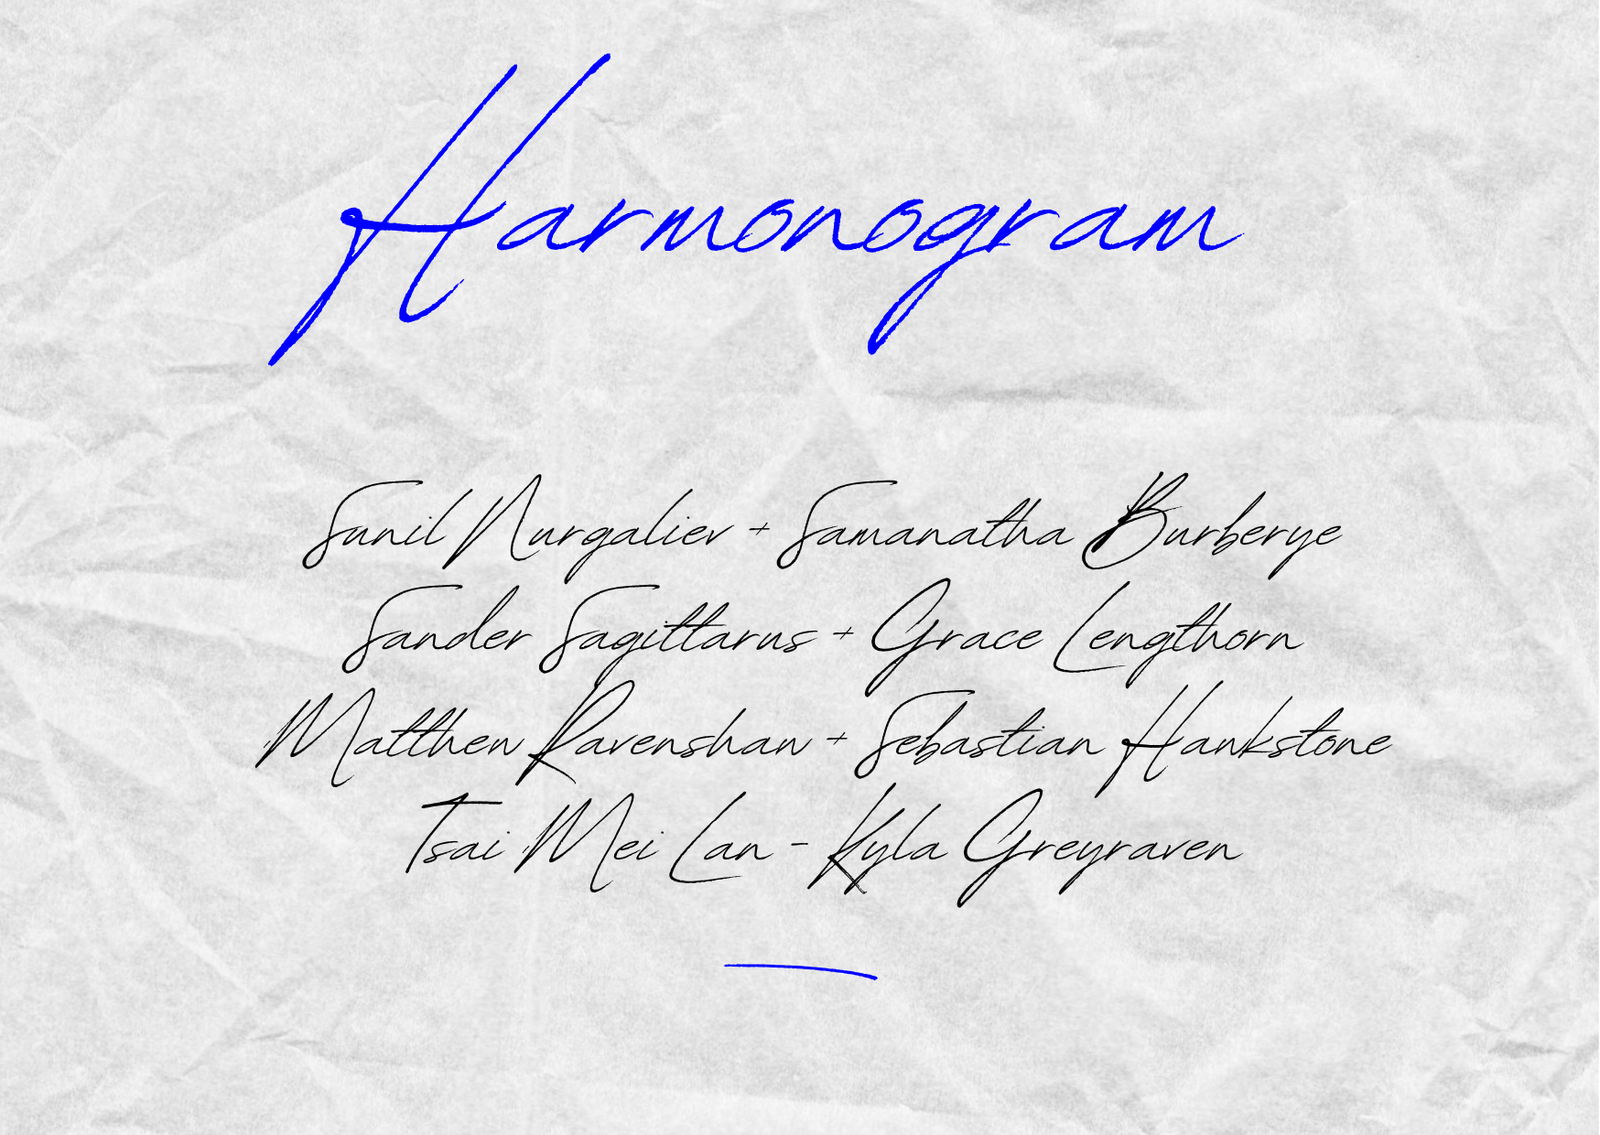 Harmonogram
Sunil Nurgaliev + Samanatha Burberye
Sander Sagittarus + Grace Lengthorn
Matthew Ravenshaw + Sebastian Hawkstone
Tsai Mei Lan - Kyla Greyraven